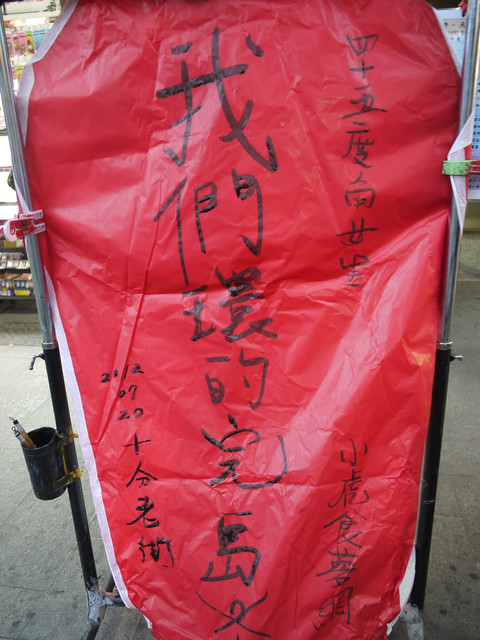 四十五度角女生
小虎食夢網
我們環的完島
2012
07
20
十分老街